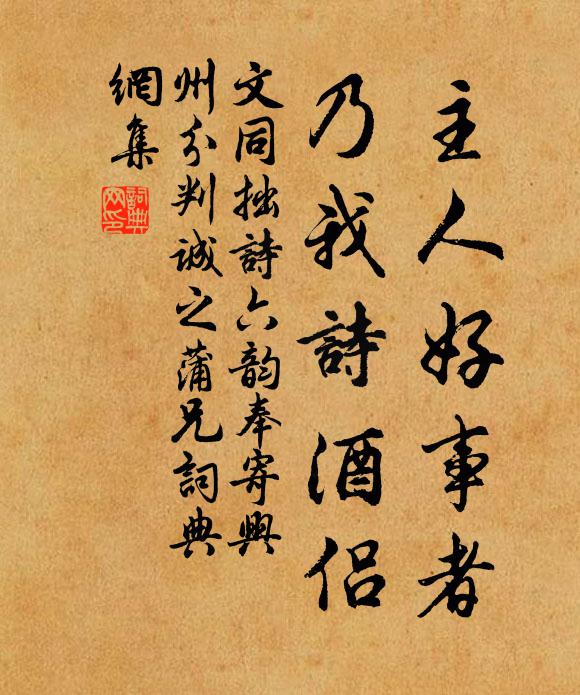 主人好事者
乃我詩酒侶
文同拙詩六韵奉寄興
州分判誠之蒲兄詞典
網集
詞典
网印